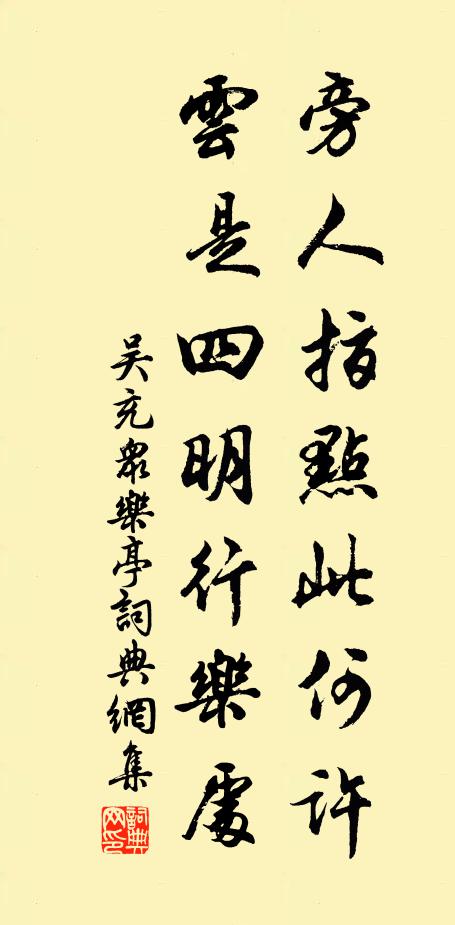 旁人指點此何許
雲是四明行樂處
吴充眾樂亭詞典網集
詞典网印